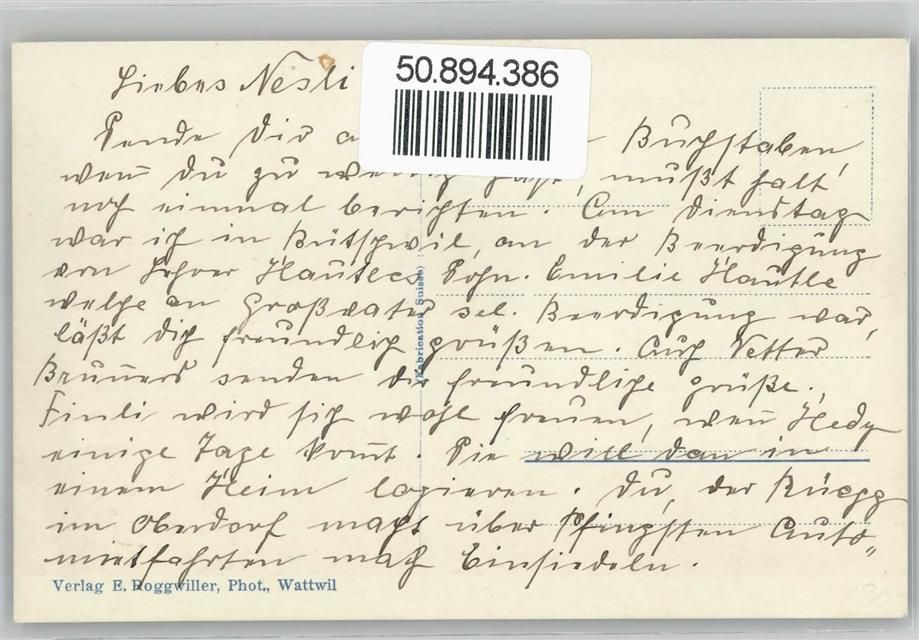 50.894.386
Liebes Nesli
Sende Dir a Buchstaben,
wen̄ Du zu wenig hast, mußt halt
noch einmal berichten. Am Dienstag
war ich in Bütschwil, an der Beerdigung
von Lehrer Hautles Sohn. Emilie Hautle
welche an Großvater sel. Beerdigung war,
läßt Dich freundlich grüßen. Auch Vetter
Brun̄ers senden dir freundliche Grüße.
Finli wird sich wohl freuen, wen̄ Hedy
einige Tage kom̄t. Sie will dan in
einem Heim logieren. Du, der Rüegg
im Oberdorf macht über Pfingsten Auto-
mietfahrten nach Einsiedeln.
(Fabrication Suisse)
Verlag E. Roggwiller, Phot., Wattwil